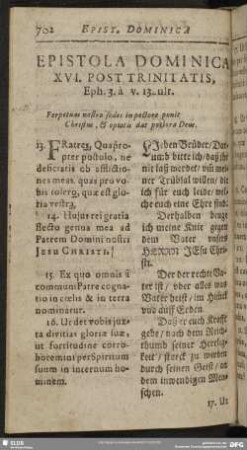 702 EPIST. DOMINICA
EPISTOLA DOMINICA
XVI. POST TRINITATIS,
Eph. 3. à v. 13. ult.
Perpetuus nostra in pectore ponit
Christus, & optata dat Deus.
13. FRatres, Quapro-
pter postulo, ne
deficiatis ob afflictio-
nes meas quas pro vo-
bis tolero, quæ est glo-
ria vestra,
14. Hujus rei gratia
flecto genua mea ad
Patrem Domini nostri
JESU CHRISTI.
15. Ex quo omnis à
communi Patre cogna-
tio in cœlis & in terra
nominatur.
16. Ut det vobis jux-
ta divitias gloriæ suæ,
ut fortitudine corro-
boremini per Spiritum
suum in internum ho-
minem.
LIeben Brüder, Dar-
umb bitte ich, daß jhr
nit laß werdet, umb mei-
ner Trübsal willen, die
ich für euch leide, wel-
che euch eine Ehre sind.
Derhalben beuge
ich meine Knie gegen
dem Vater unsers
HERRN JEsu Chri-
sti.
Der der rechte Va-
ter ist, über alles was
Vater heist, im Himel
und auff Erden.
Daß er euch Krafft
gebe, nach dem Reich-
thumb seiner Herrlig-
keit, starck zu werden
durch seinen Geist, an
dem inwendigen Men-
schen.
17. Ut
SLUB